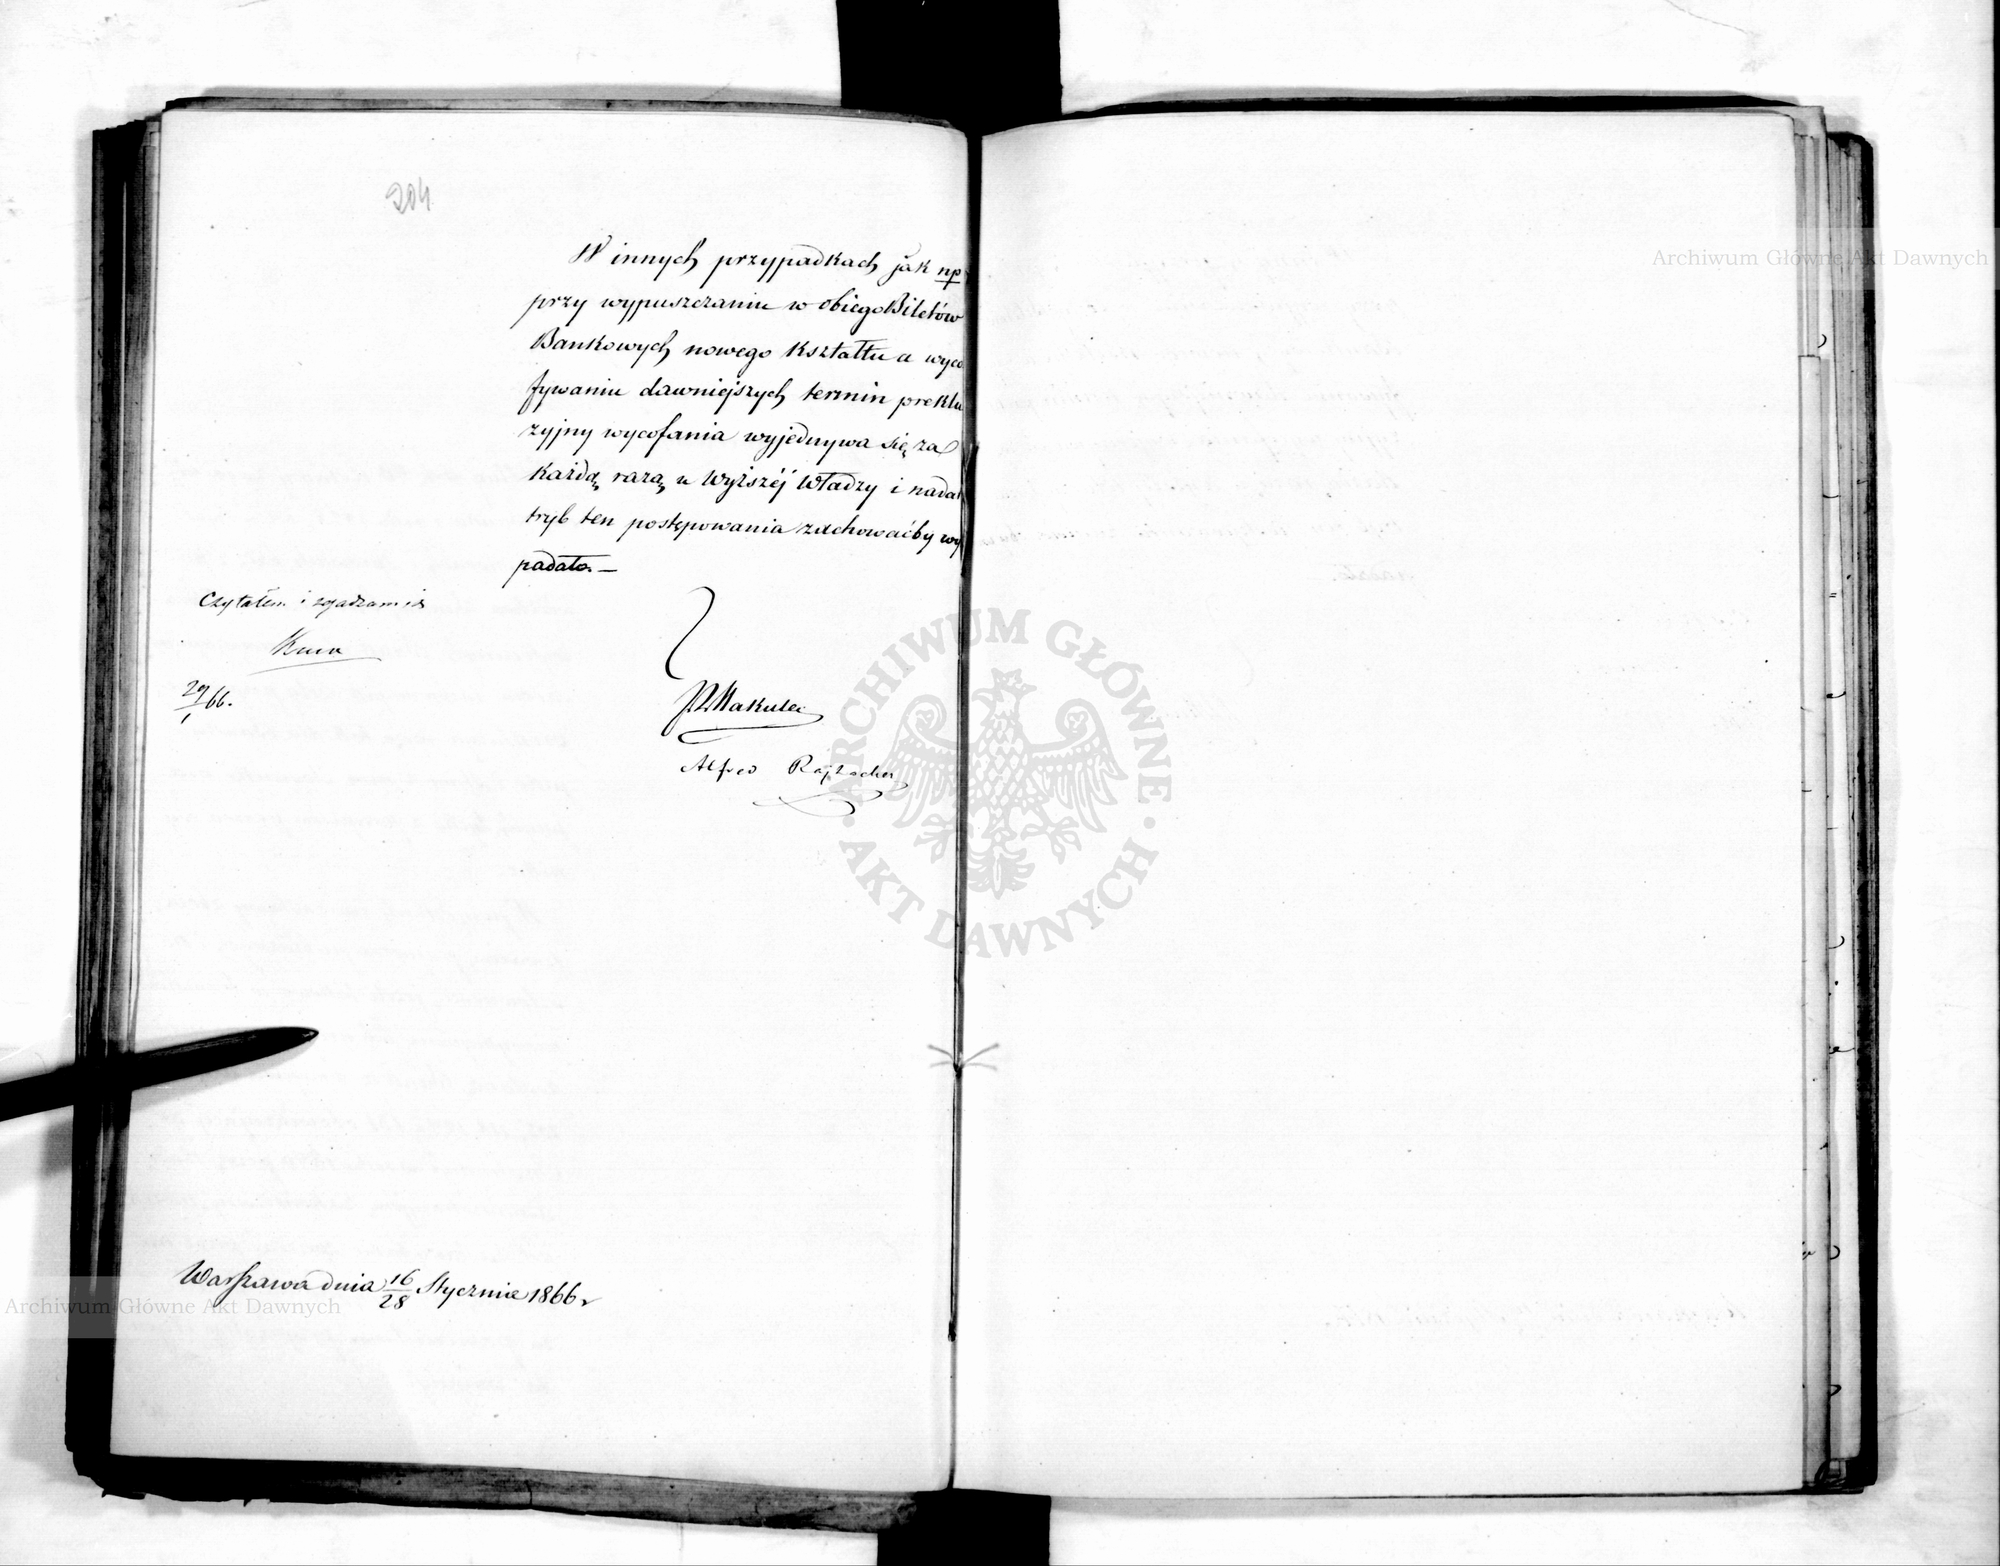 204
W innych przypadkach jak np
przy wypuszczaniu w obieg Biletów
Bankowych nowego kształtu a wyco
fywaniu dawniejszych termin preklu
zyjny wycofania wyjednywa się za
każdą razą u Wyższéj Władzy i nadal
tryb ten postępowania zachowaćby wy
padało. —
Czytałem i zgadzam się
29/1 66.
Makulec
Alfred
Warszawa dnia 16/28 Stycznia 1866 r
Archiwum Główne Akt Dawnych
Archiwum Główne Akt Dawnych
ARCHIWUM GŁÓWNE AKT DAWNYCH